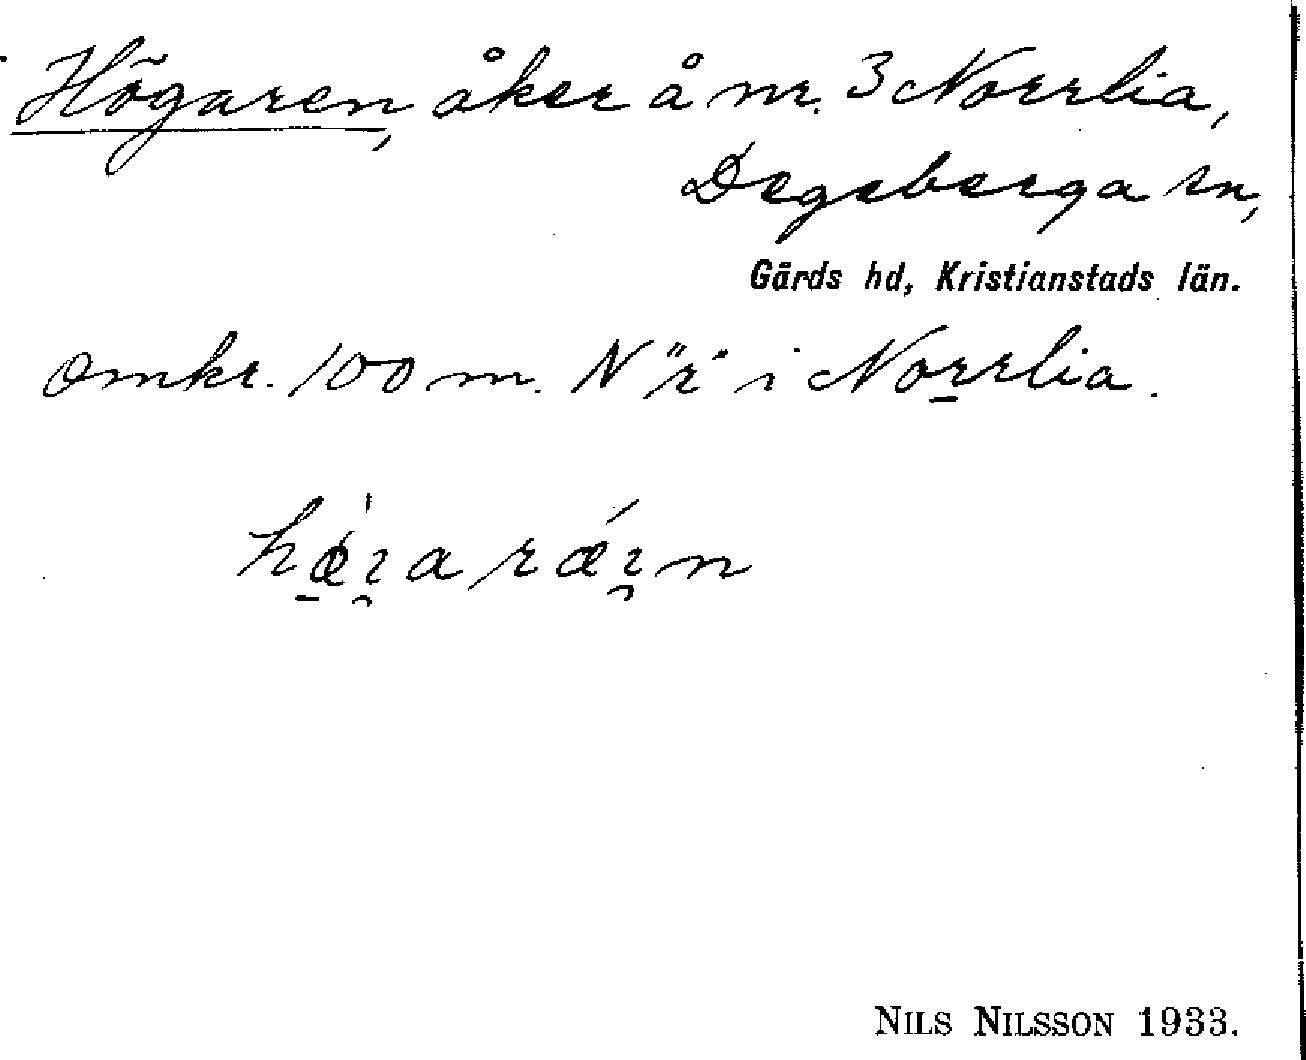 Högaren, åker å nr. 3 Norrlia,
Degeberga sn,
Gärds hd, Kristianstads län.
omkr. 100 m. N "r" i Norrlia.
NILS NILSSON 1933.